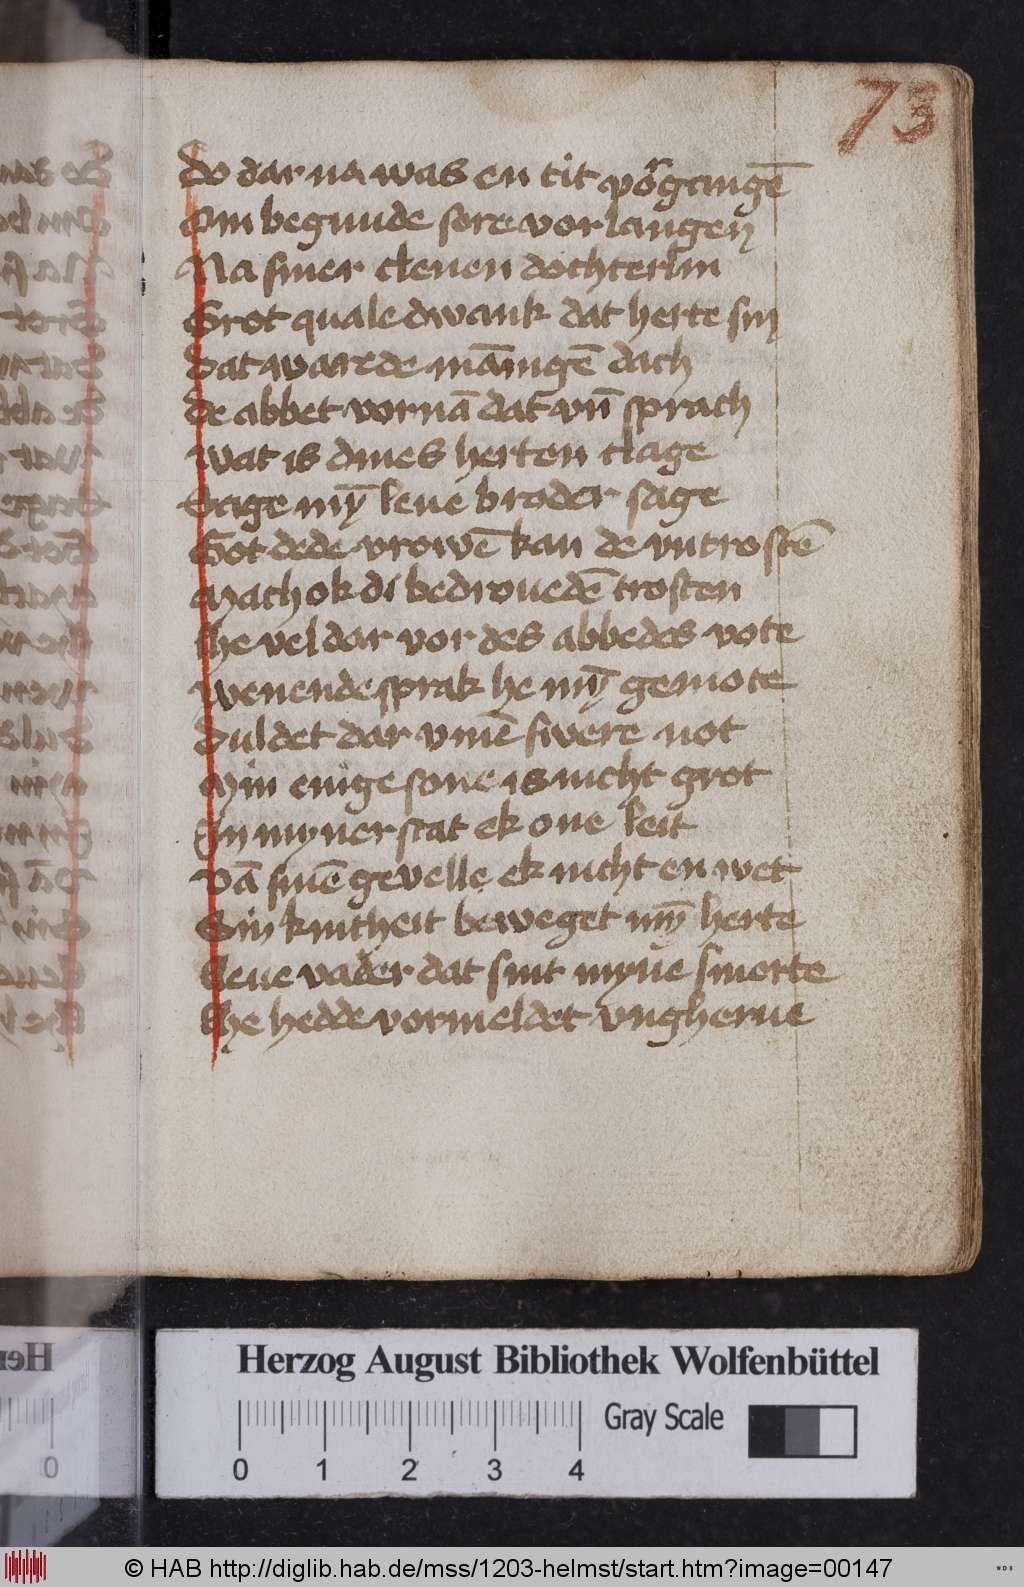 73
Do dar na was en tit vorgangē
Om begunde sere vorlangen
Na siner clenen dochterlin
Grot quale dwank dat herte sin
Dat warede mānigē dach
de abbet vornā dat vn̄ sprach
wat is dines herten clage
Sage mȳ leue broder sage
Got dede vrowē kan de vntrostē
Mach ok di bedrouedē trosten
he vel dar vor des abbedes vote
wenende sprak he mȳ gemote
Duldet dar vmē swere not
Min enige sone is nicht grot
In myner stat ek one leit
Vā sinē gevelle ek nicht en wet
Sin kintheit beweget mȳ herte
Leue vader dat sint myne smerte
he hedde vormeldet vngherne
Herzog August Bibliothek Wolfenbüttel
0 1 2 3 4
Gray Scale
© HAB http://diglib.hab.de/mss/1203-helmst/start.htm?image=00147